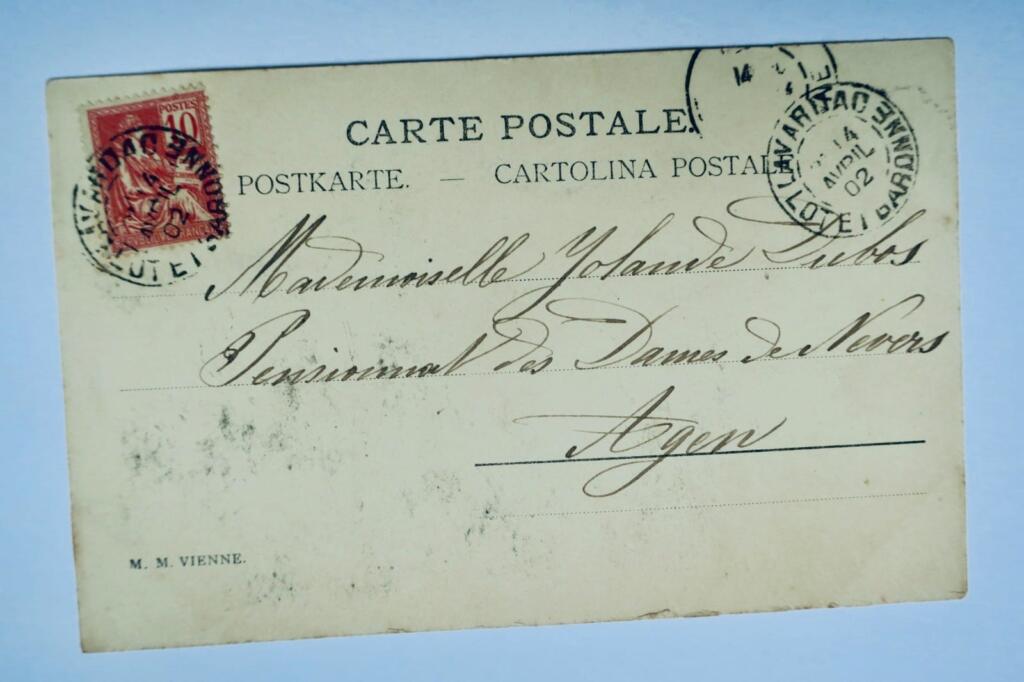 POSTES
10
14
CARTE POSTALE.
POSTKARTE. — CARTOLINA POSTALE
LAVARDAC
14
AVRIL
02
LOT ET GARONNE
LAVARDAC
14
AVRIL
02
LOT ET GARONNE
Mademoiselle Yolande Dubos
Pensionnat des Dames de Nevers
Agen
M. M. VIENNE.